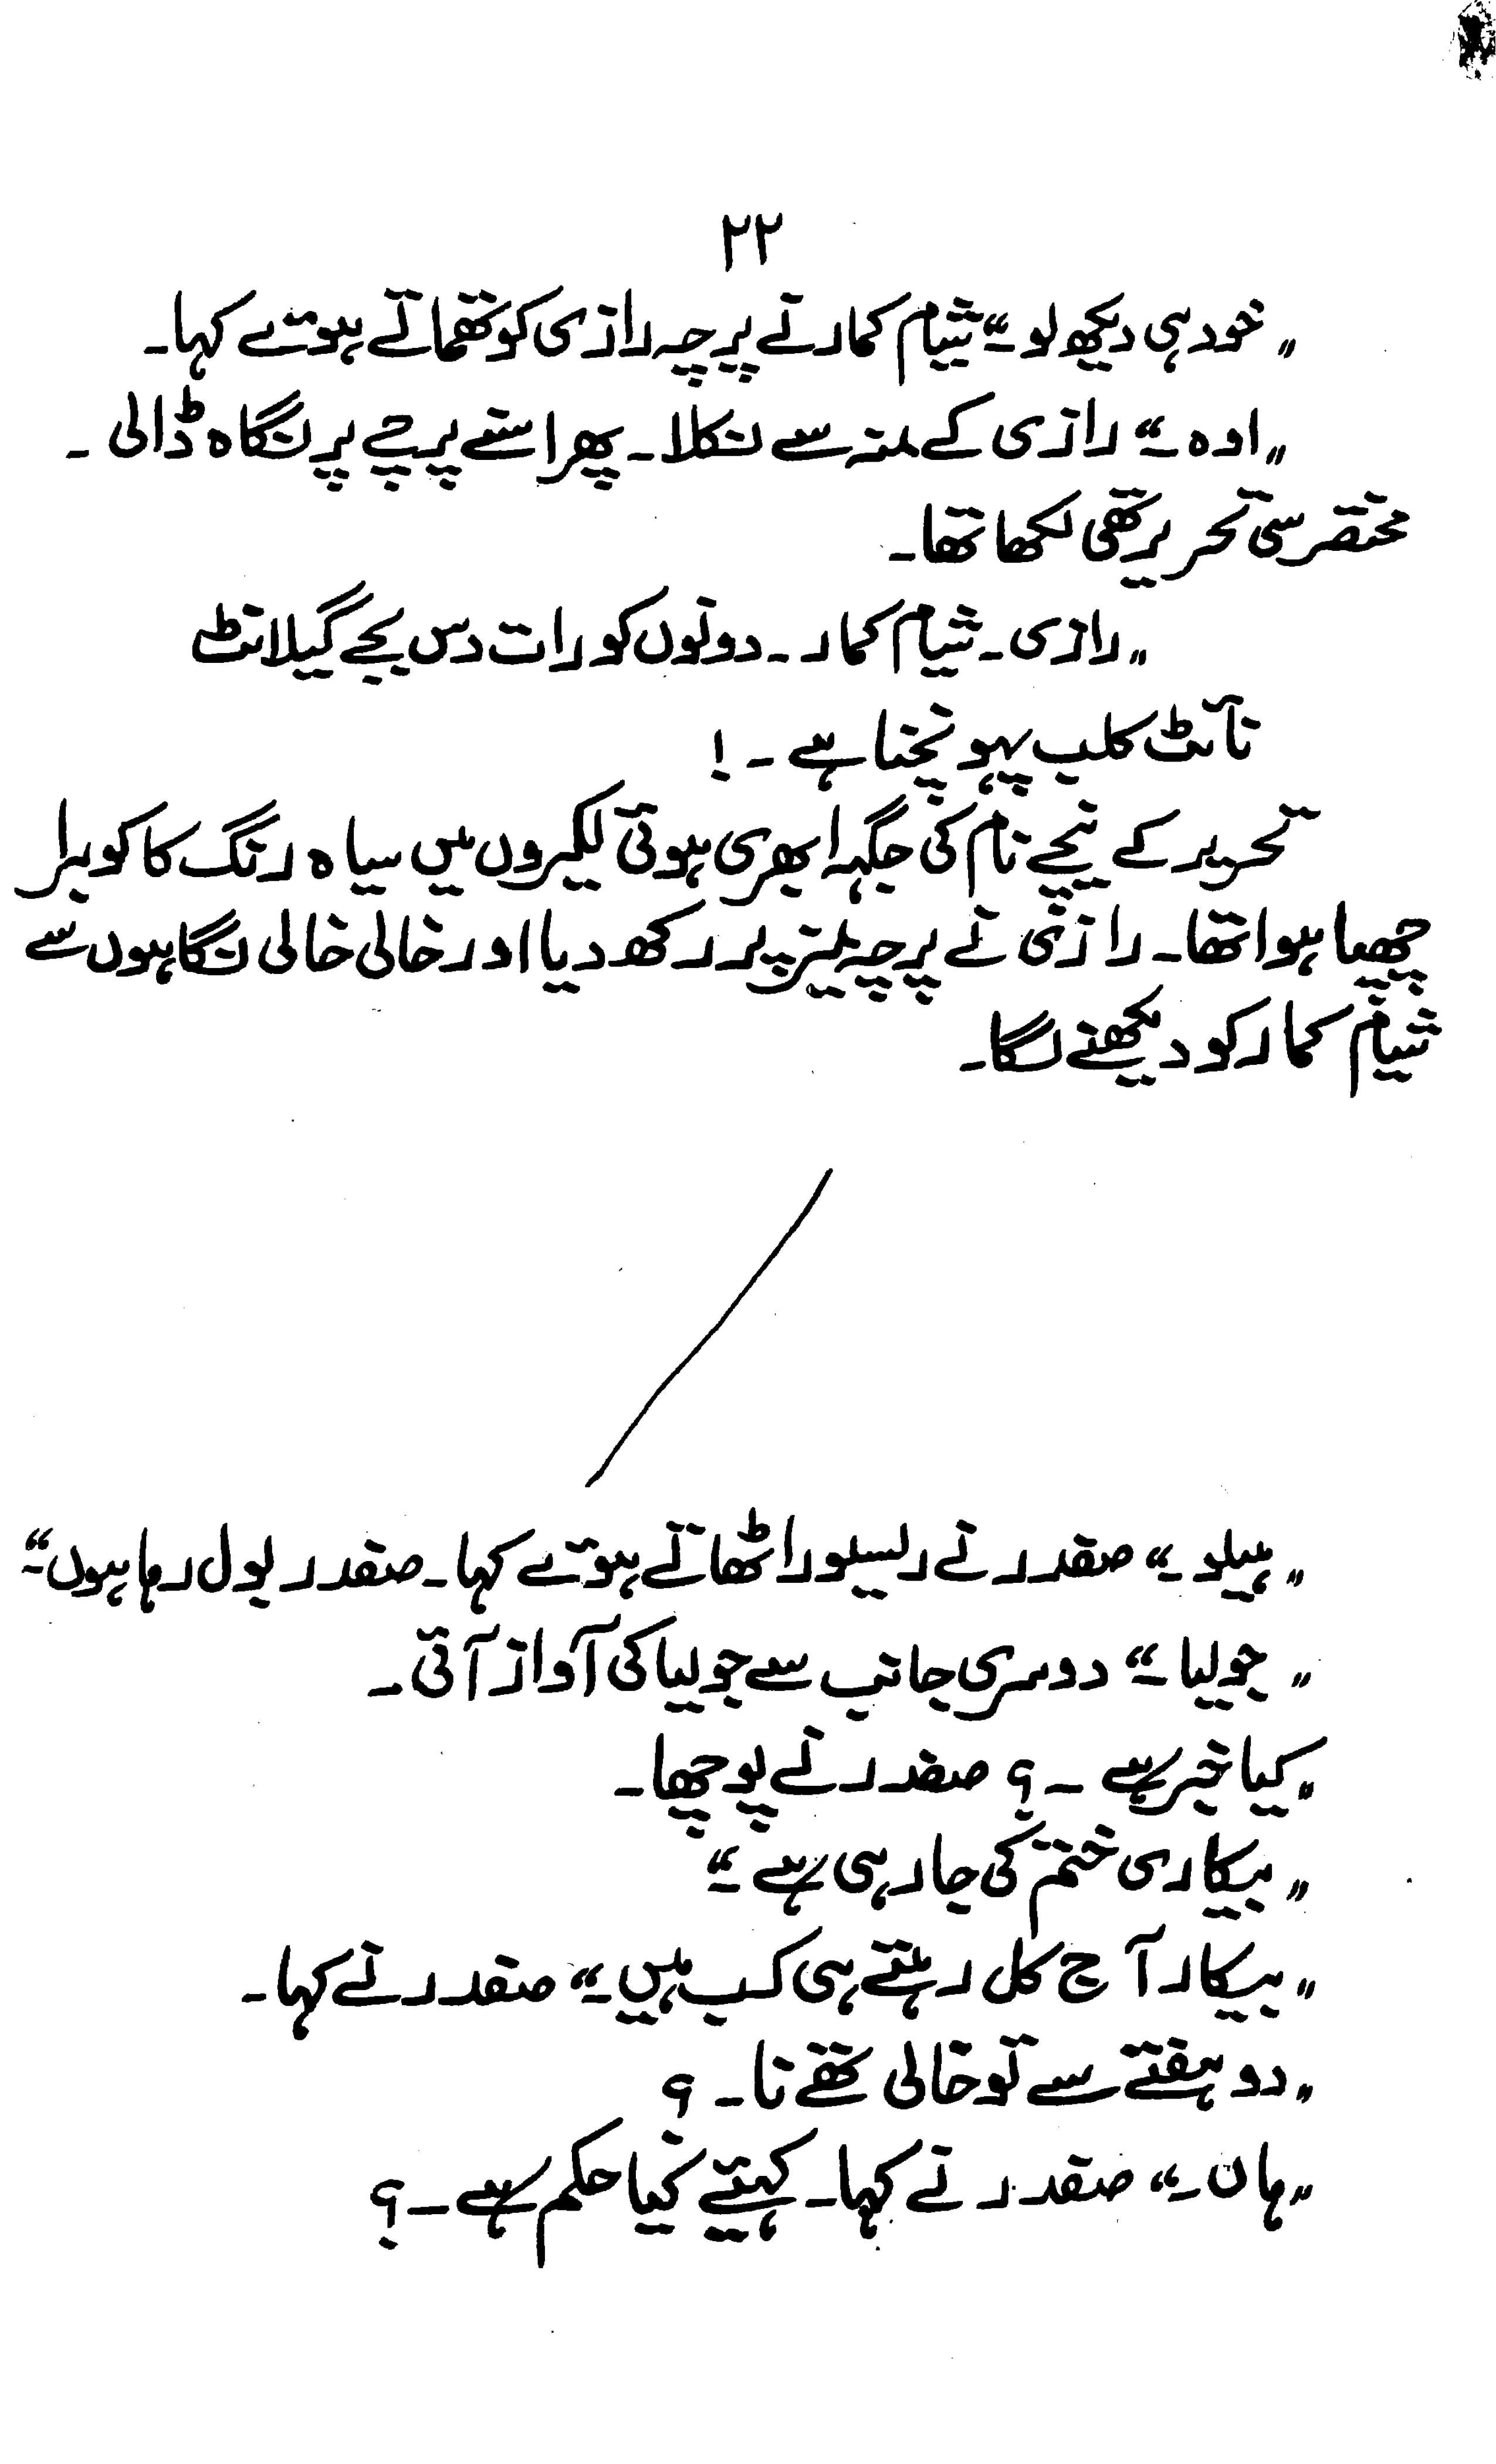 ۲۲
"خود ہی دیکھ لو۔" شیام کمار نے پرچہ رازی کو تھماتے ہوئے کہا۔
"اوہ۔" رازی کے منہ سے نکلا۔ پھر اسنے پرچے پر نگاہ ڈالی۔
مختصر سی تحریر تھی لکھا تھا۔
"رازی۔ شیام کمار۔ دونوں کو رات دس بجے گیلانٹ
نائٹ کلب پہونچنا ہے۔!
تحریر کے نیچے نام کی جگہ ابھری ہوئی لکیروں میں سیاہ رنگ کا کوبرا
چھپا ہوا تھا۔ رازی نے پرچہ میز پر رکھ دیا اور خالی خالی نگاہوں سے
شیام کمار کو دیکھنے لگا۔
"ہیلو۔" صفدر نے ریسیور اٹھاتے ہوئے کہا۔ صفدر بول رہا ہوں۔"
"جولیا۔" دوسری جانب سے جولیا کی آواز آئی۔
"کیا خبر ہے۔؟ صفدر نے پوچھا۔
"بیکاری ختم کی جا رہی ہے۔"
"بیکار آج کل رہتے ہی کب ہیں۔" صفدر نے کہا۔
"دو ہفتے سے تو خالی تھے نا۔؟
"ہاں۔" صفدر نے کہا۔ کہیئے کیا حکم ہے۔؟